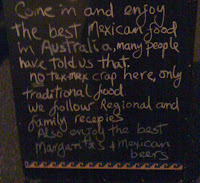 Come in and enjoy
the best Mexican food
in Australia, many people
have told us that.
no tex-mex crap here, only
traditional food
we follow Regional and
family recepies
Also enjoy the best
Margarita's + Mexican
beers